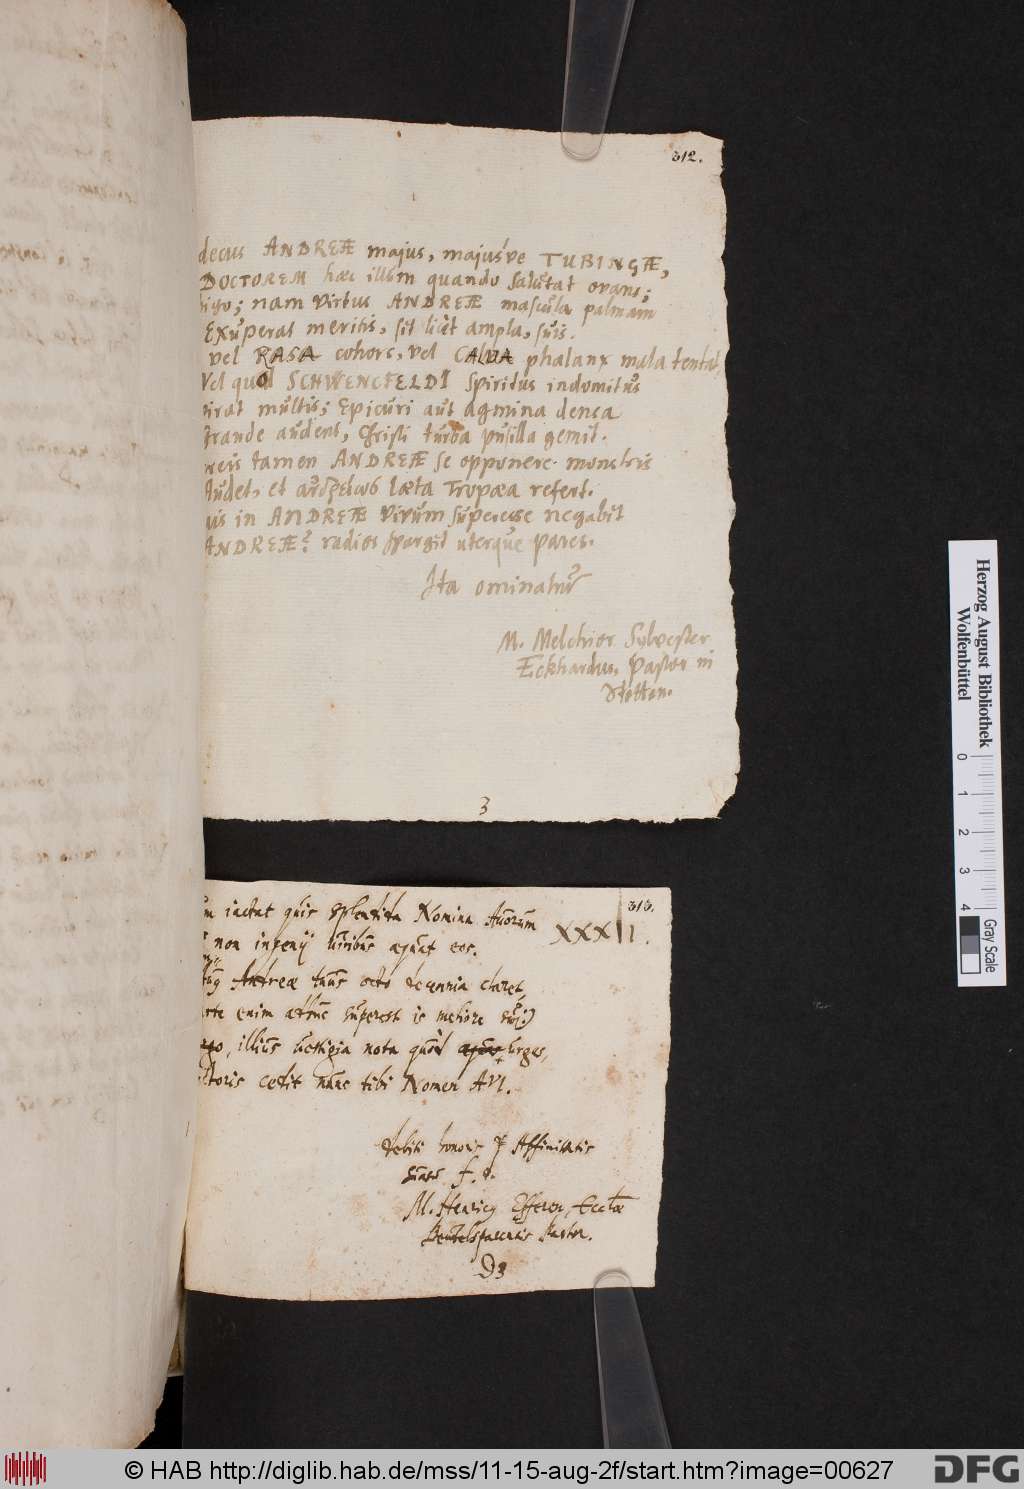 312.
decus ANDREÆ majus, majusve TUBINGÆ,
DOCTOREM hæc illum quando salutat ovans;
nam Virtus ANDREÆ mascula palmam
Exuperat meritis, sit licèt ampla, suis.
vel RASA cohors, vel CALVA phalanx mala tentat,
Vel quod SCHWENCFELDI Spiritus indomitus
multis; Epicuri aut agmina densa
Grande audent, Christi turba pusilla gemit.
tamen ANDREÆ se opponere monstris
Audet, et læta Tropæa refert.
in ANDREÆ virum superesse negabit
ANDREÆ? radios spargit uterque pares.
Ita ominatur
M. Melchior Sylvester
Eckhardus. Pastor in
Stetten.
3
313.
XXXII.
iactat quis splendida Nomina Avorum
non ingenij viribus æquat eos.
Andreæ tuus octo decennia claret,
enim adhuc superest is meliore sui:)
illius vestigia nota quòd urges,
cedit nunc tibi Nomen AVI.
debiti honoris & Affinitatis
f.
M. Henricus Efferen, Eccl
Beutelspacensis Pastor.
D3
Herzog August Bibliothek
Wolfenbüttel
0 1 2 3 4
Gray Scale
© HAB http://diglib.hab.de/mss/11-15-aug-2f/start.htm?image=00627
DFG